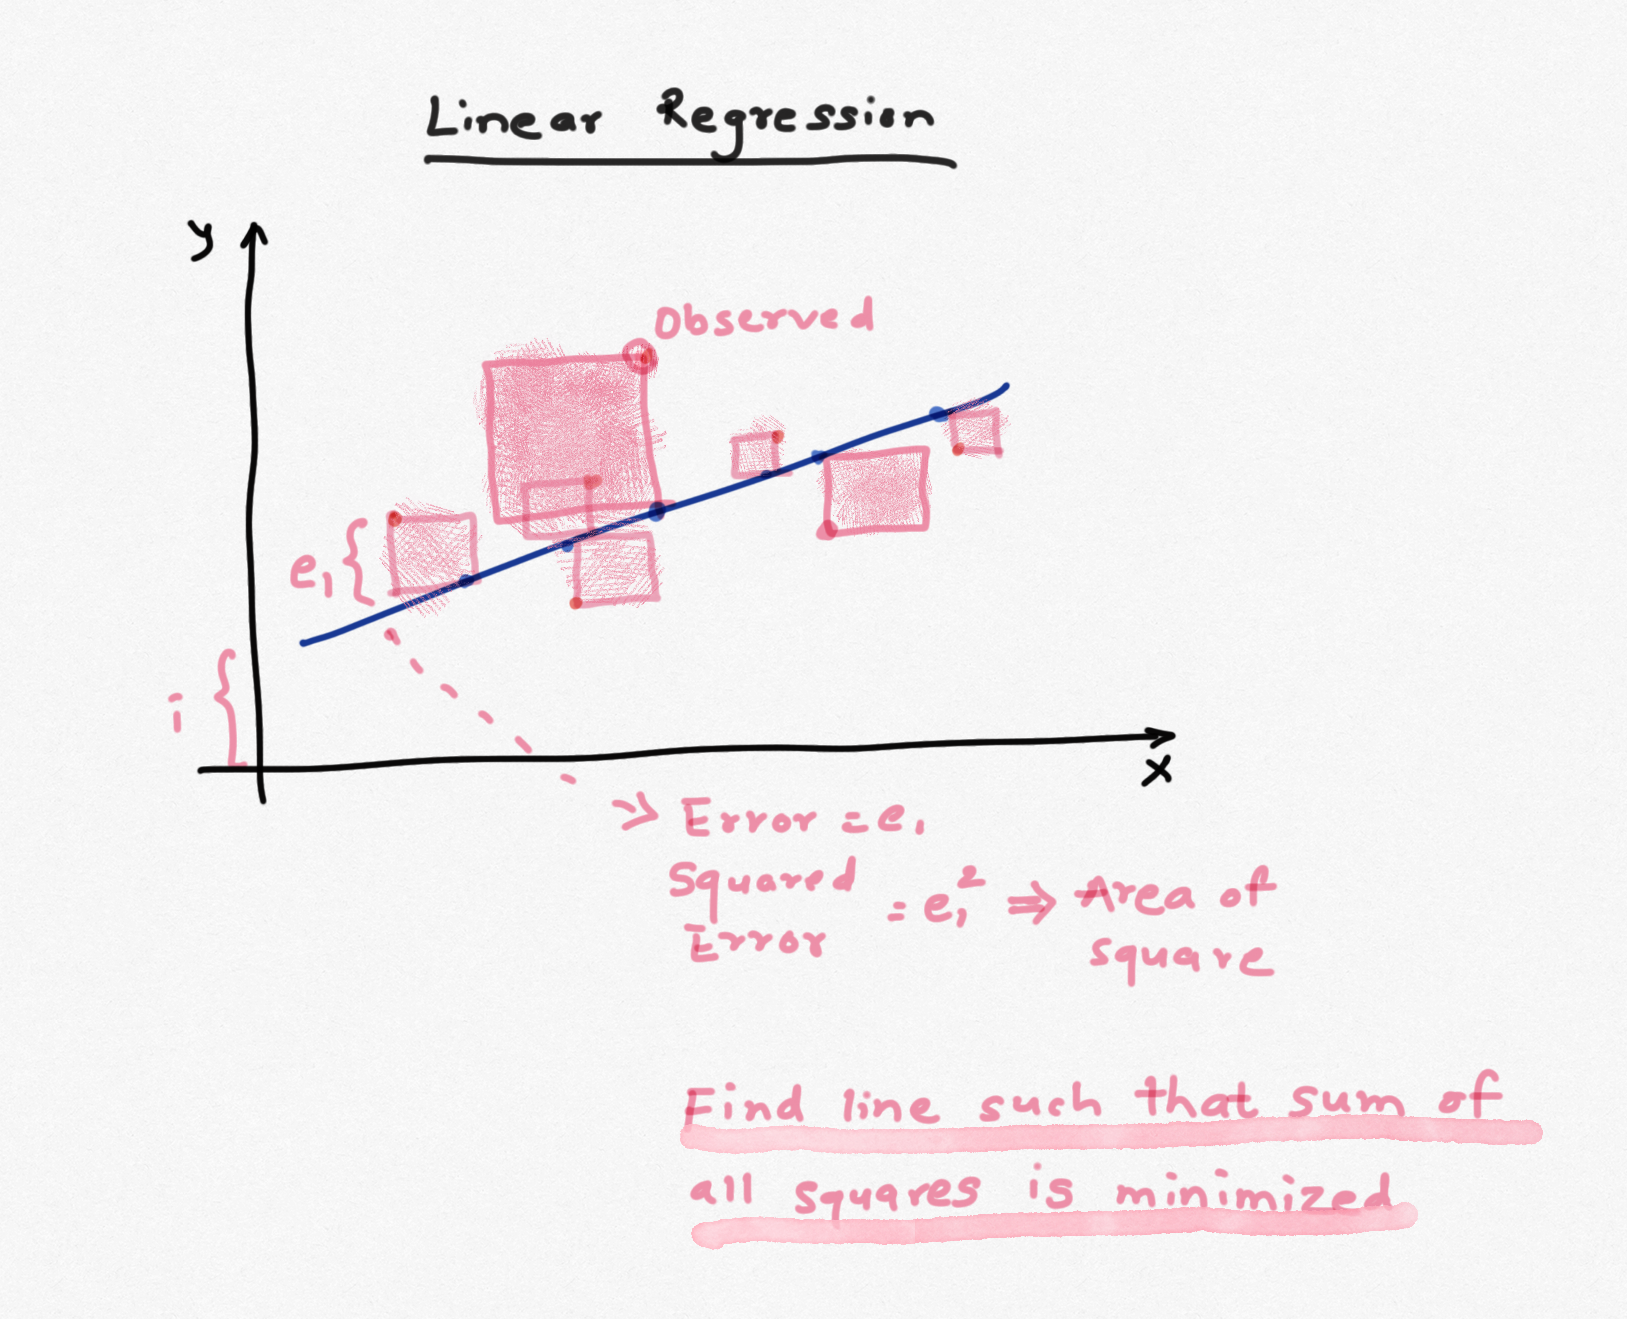 Linear Regression
y
Observed
e₁{
i {
x
Error = e₁
Squared Error = e₁² ⇒ Area of square
Find line such that sum of
all squares is minimized